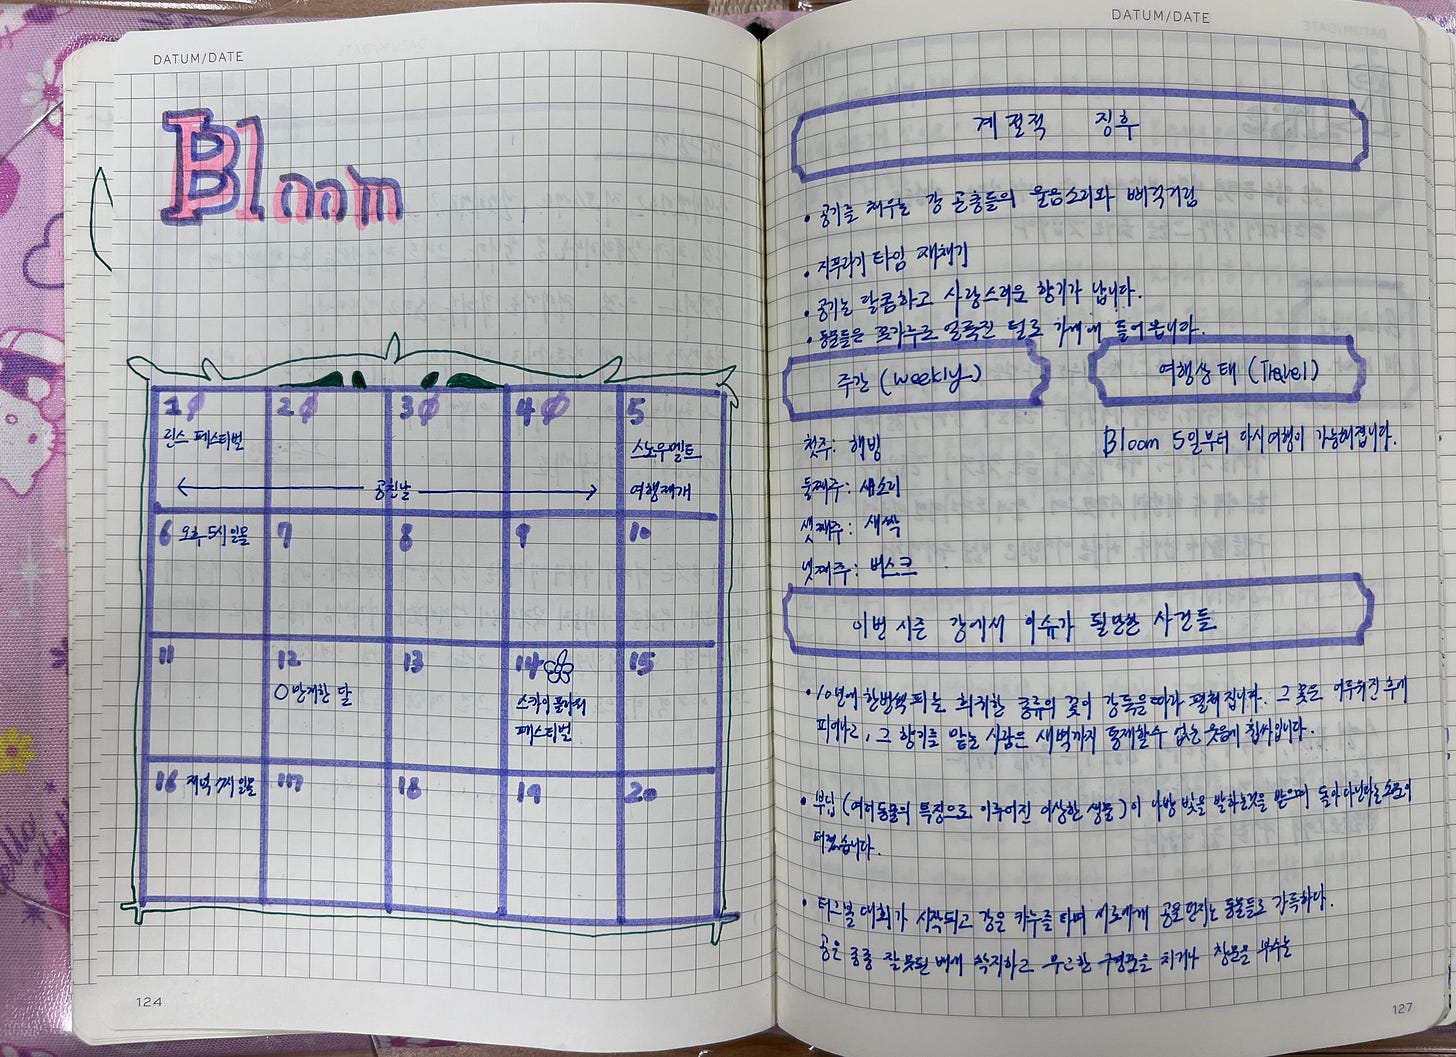 DATUM/DATE
Bloom
1
린스 페스티벌
2
3
4
5
스노우멜트
여행재개
공친날
6 오후 5시 일몰
7
8
9
10
11
12
만개한 달
13
14
스카이 플라워
페스티벌
15
16 저녁 7시 일몰
17
18
19
20
124
DATUM/DATE
계절적 징후
• 공기를 채우는 강 곤충들의 울음소리와 삐걱거림
• 지푸라기 타임 재채기
• 공기는 달콤하고 사랑스러운 향기가 납니다.
• 동물들은 꽃가루로 얼룩진 털로 가게에 들어옵니다.
주간 (weekly)
여행상태 (Travel)
첫주: 해빙
둘째주: 새소리
셋째주: 새싹
넷째주: 버스크
Bloom 5일부터 다시 여행이 가능해집니다.
이번 시즌 강에서 이슈가 될만한 사건들
• 10년에 한번씩 피는 희귀한 종류의 꽃이 강둑을 따라 펼쳐집니다. 그 꽃은 어두워진 후에
피어나고, 그 향기를 맡는 사람은 새벽까지 통제할수 없는 웃음에 휩싸입니다.
• 부덥 (여러동물의 특징으로 이루어진 이상한 생물) 이 나방 빛을 발하는것을 받으며 돌아다닌다는 소문이
퍼졌습니다.
• 터그볼 대회가 시작되고 강은 카누를 타며 서로에게 공을 던지는 동물들로 가득하다.
공은 종종 잘못된 배에 착지하고 무고한 구경꾼을 치거나 창문을 부수는
127